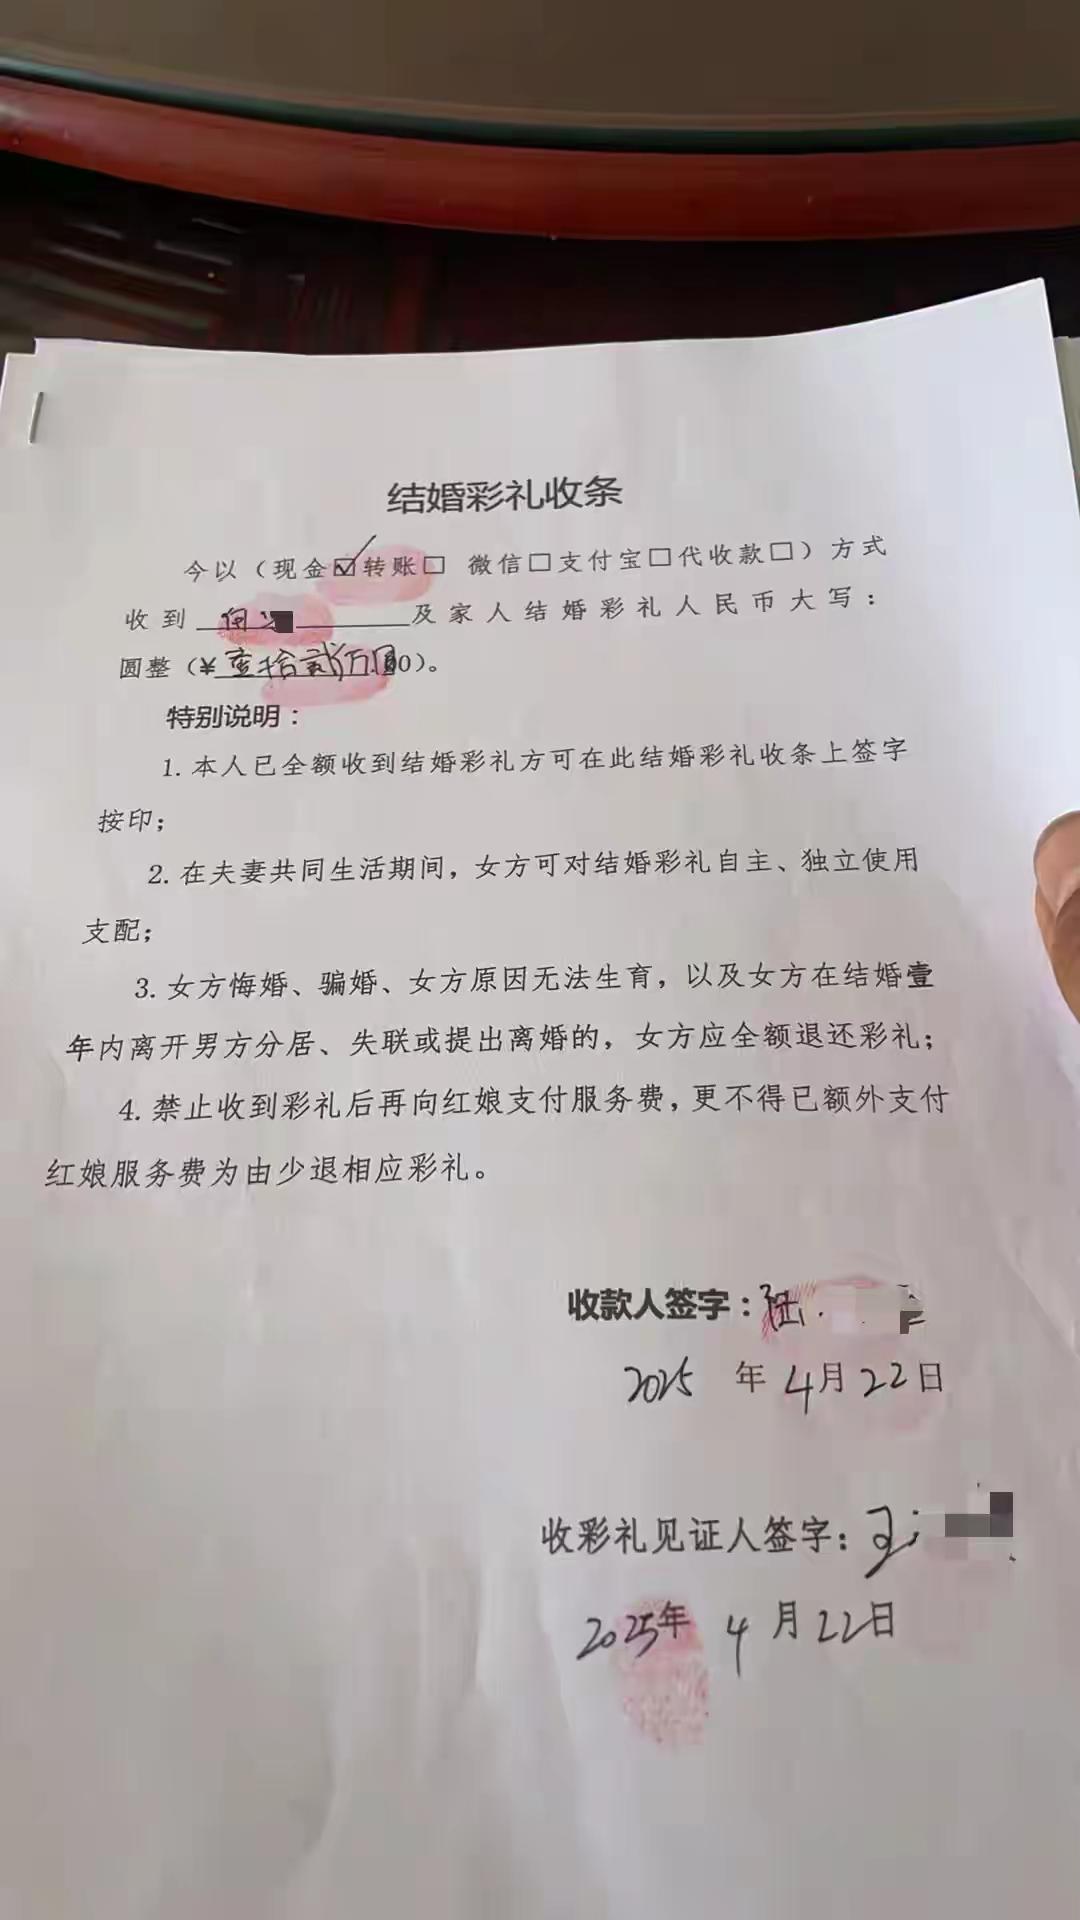 结婚彩礼收条
今以（现金☑转账□ 微信□支付宝□代收款□）方式
收到 及家人结婚彩礼人民币大写：
圆整（¥壹拾贰万 00）。
特别说明：
1. 本人已全额收到结婚彩礼方可在此结婚彩礼收条上签字
按印；
2. 在夫妻共同生活期间，女方可对结婚彩礼自主、独立使用
支配；
3. 女方悔婚、骗婚、女方原因无法生育，以及女方在结婚壹
年内离开男方分居、失联或提出离婚的，女方应全额退还彩礼；
4. 禁止收到彩礼后再向红娘支付服务费，更不得已额外支付
红娘服务费为由少退相应彩礼。
收款人签字：陆
2025 年 4月22日
收彩礼见证人签字：
2025年 4 月22日